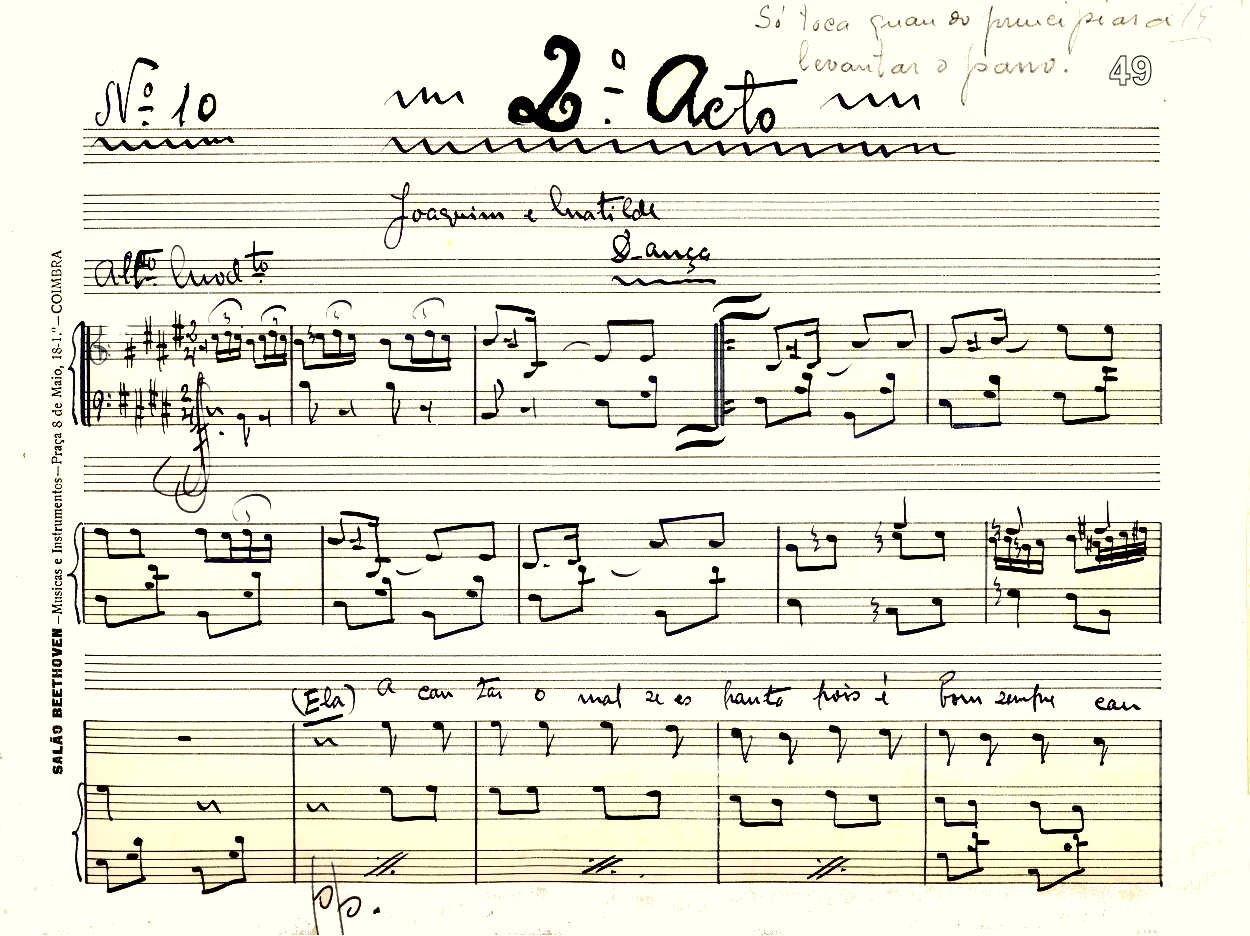 Só toca quando principiar a
levantar o pano.
49
Nº 10
2º Acto
Joaquim e Matilde
Dança
Allto Modto
(Ela) A can tar o mal se es panta pois é bom sempre can
pp.
SALÃO BEETHOVEN—Musicas e Instrumentos—Praça 8 de Maio, 18-1.º—COIMBRA